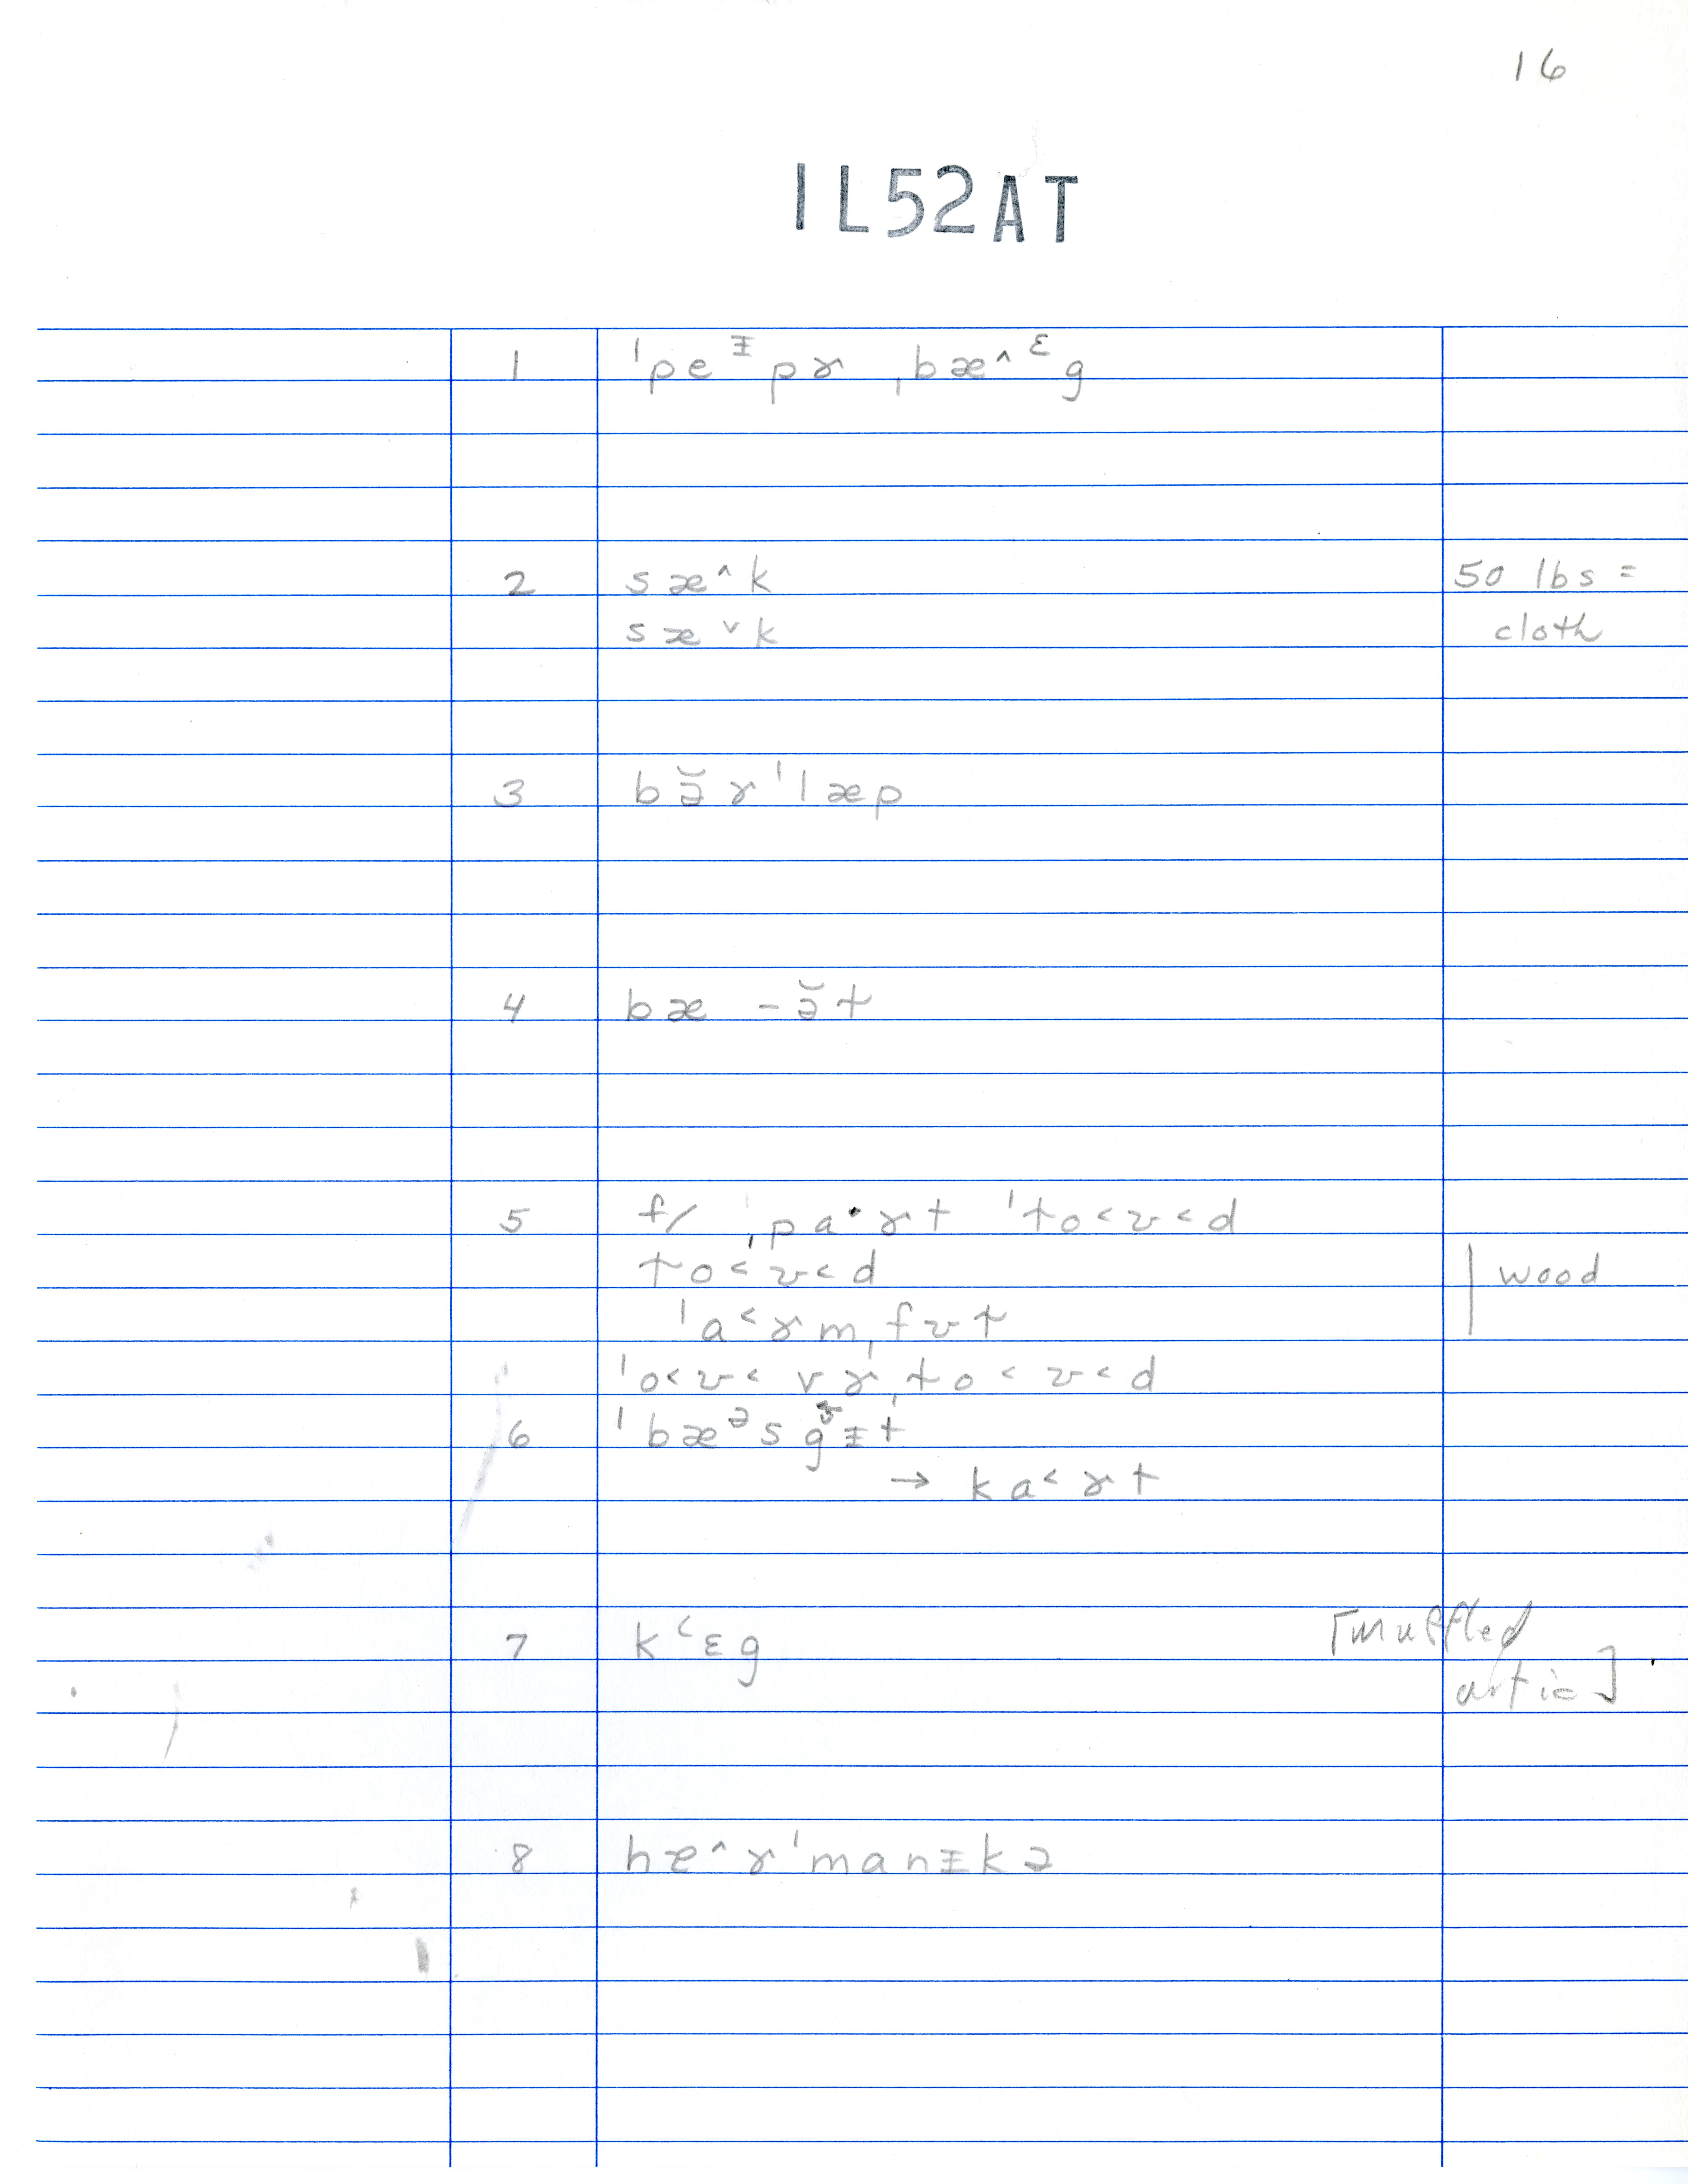 16
1L52AT
1 ˈpeᵻpɚ ˌbæ^ᵋg
2 sæ^k 50 lbs =
sæ˅k cloth
3 bə̆ɚˈlæp
4 bæ -ə̆t
5 f/ ˌpa·ɚt ˈto<ʊ<d
to<ʊ<d wood
ˈa<ɚmˌfʊt
ˈo<ʊ<vɚˌto<ʊ<d
6 ˈbæᵊsgᵻt
→ ka<ɚt
7 k<ɛg [muffled
artic]
8 hæ^ɚˈmanᵻkə